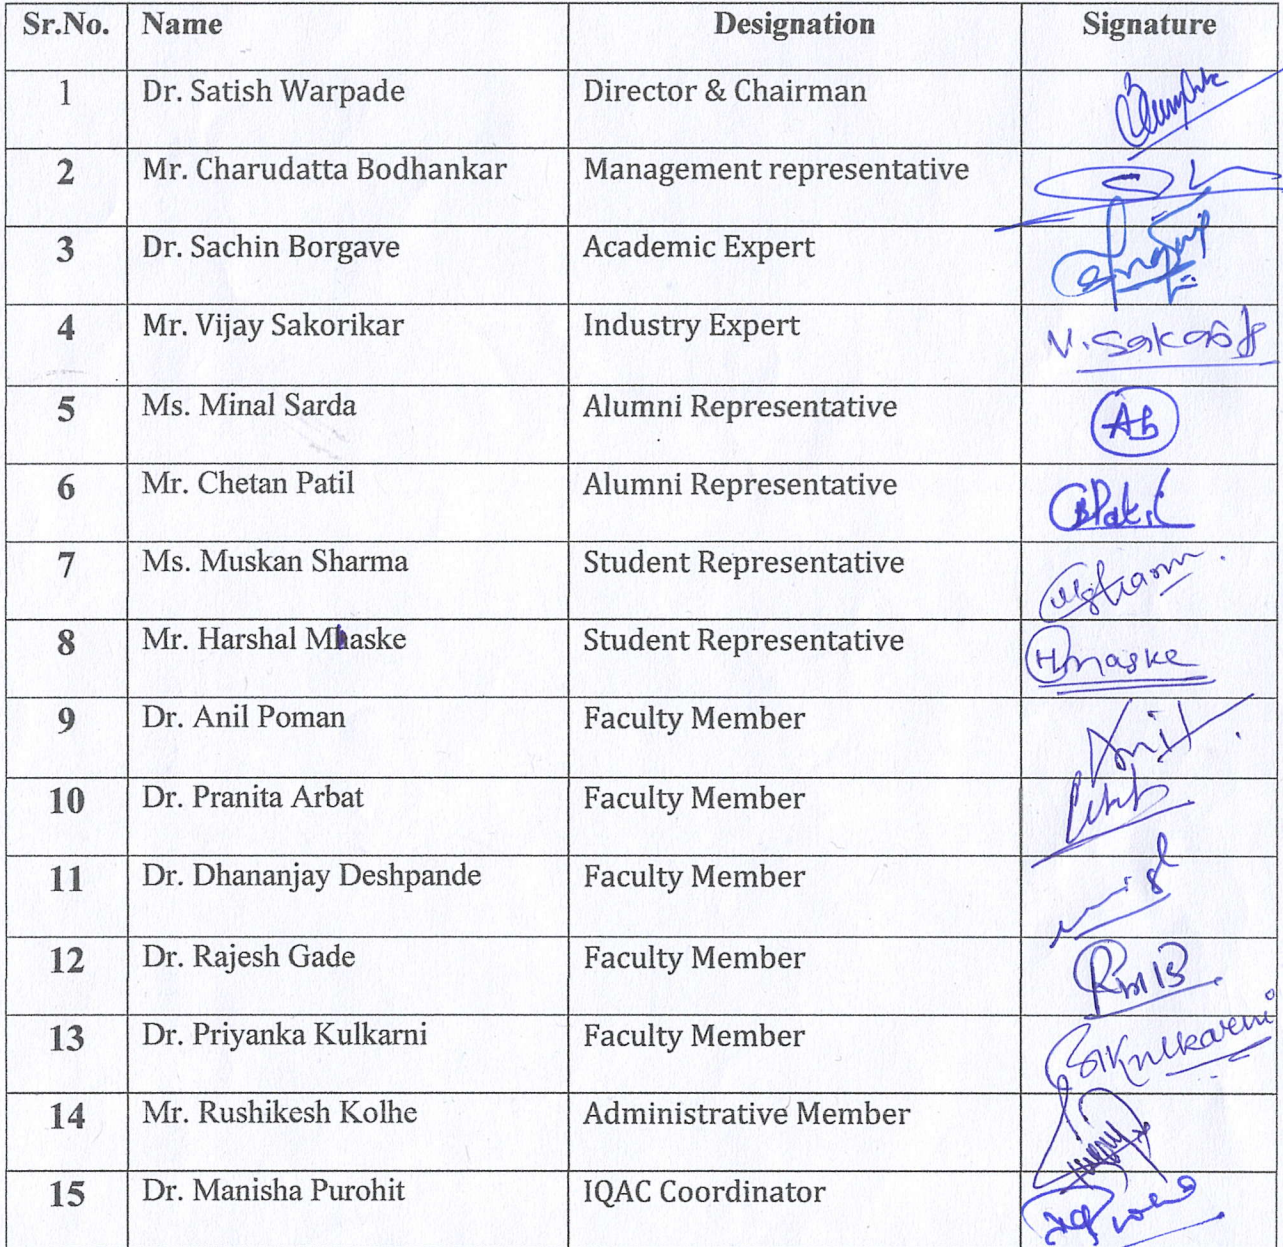 Sr.No. Name Designation Signature
1 Dr. Satish Warpade Director & Chairman
2 Mr. Charudatta Bodhankar Management representative
3 Dr. Sachin Borgave Academic Expert
4 Mr. Vijay Sakorikar Industry Expert
5 Ms. Minal Sarda Alumni Representative
6 Mr. Chetan Patil Alumni Representative
7 Ms. Muskan Sharma Student Representative
8 Mr. Harshal Mhaske Student Representative Hmaske
9 Dr. Anil Poman Faculty Member Anil
10 Dr. Pranita Arbat Faculty Member
11 Dr. Dhananjay Deshpande Faculty Member
12 Dr. Rajesh Gade Faculty Member
13 Dr. Priyanka Kulkarni Faculty Member
14 Mr. Rushikesh Kolhe Administrative Member
15 Dr. Manisha Purohit IQAC Coordinator